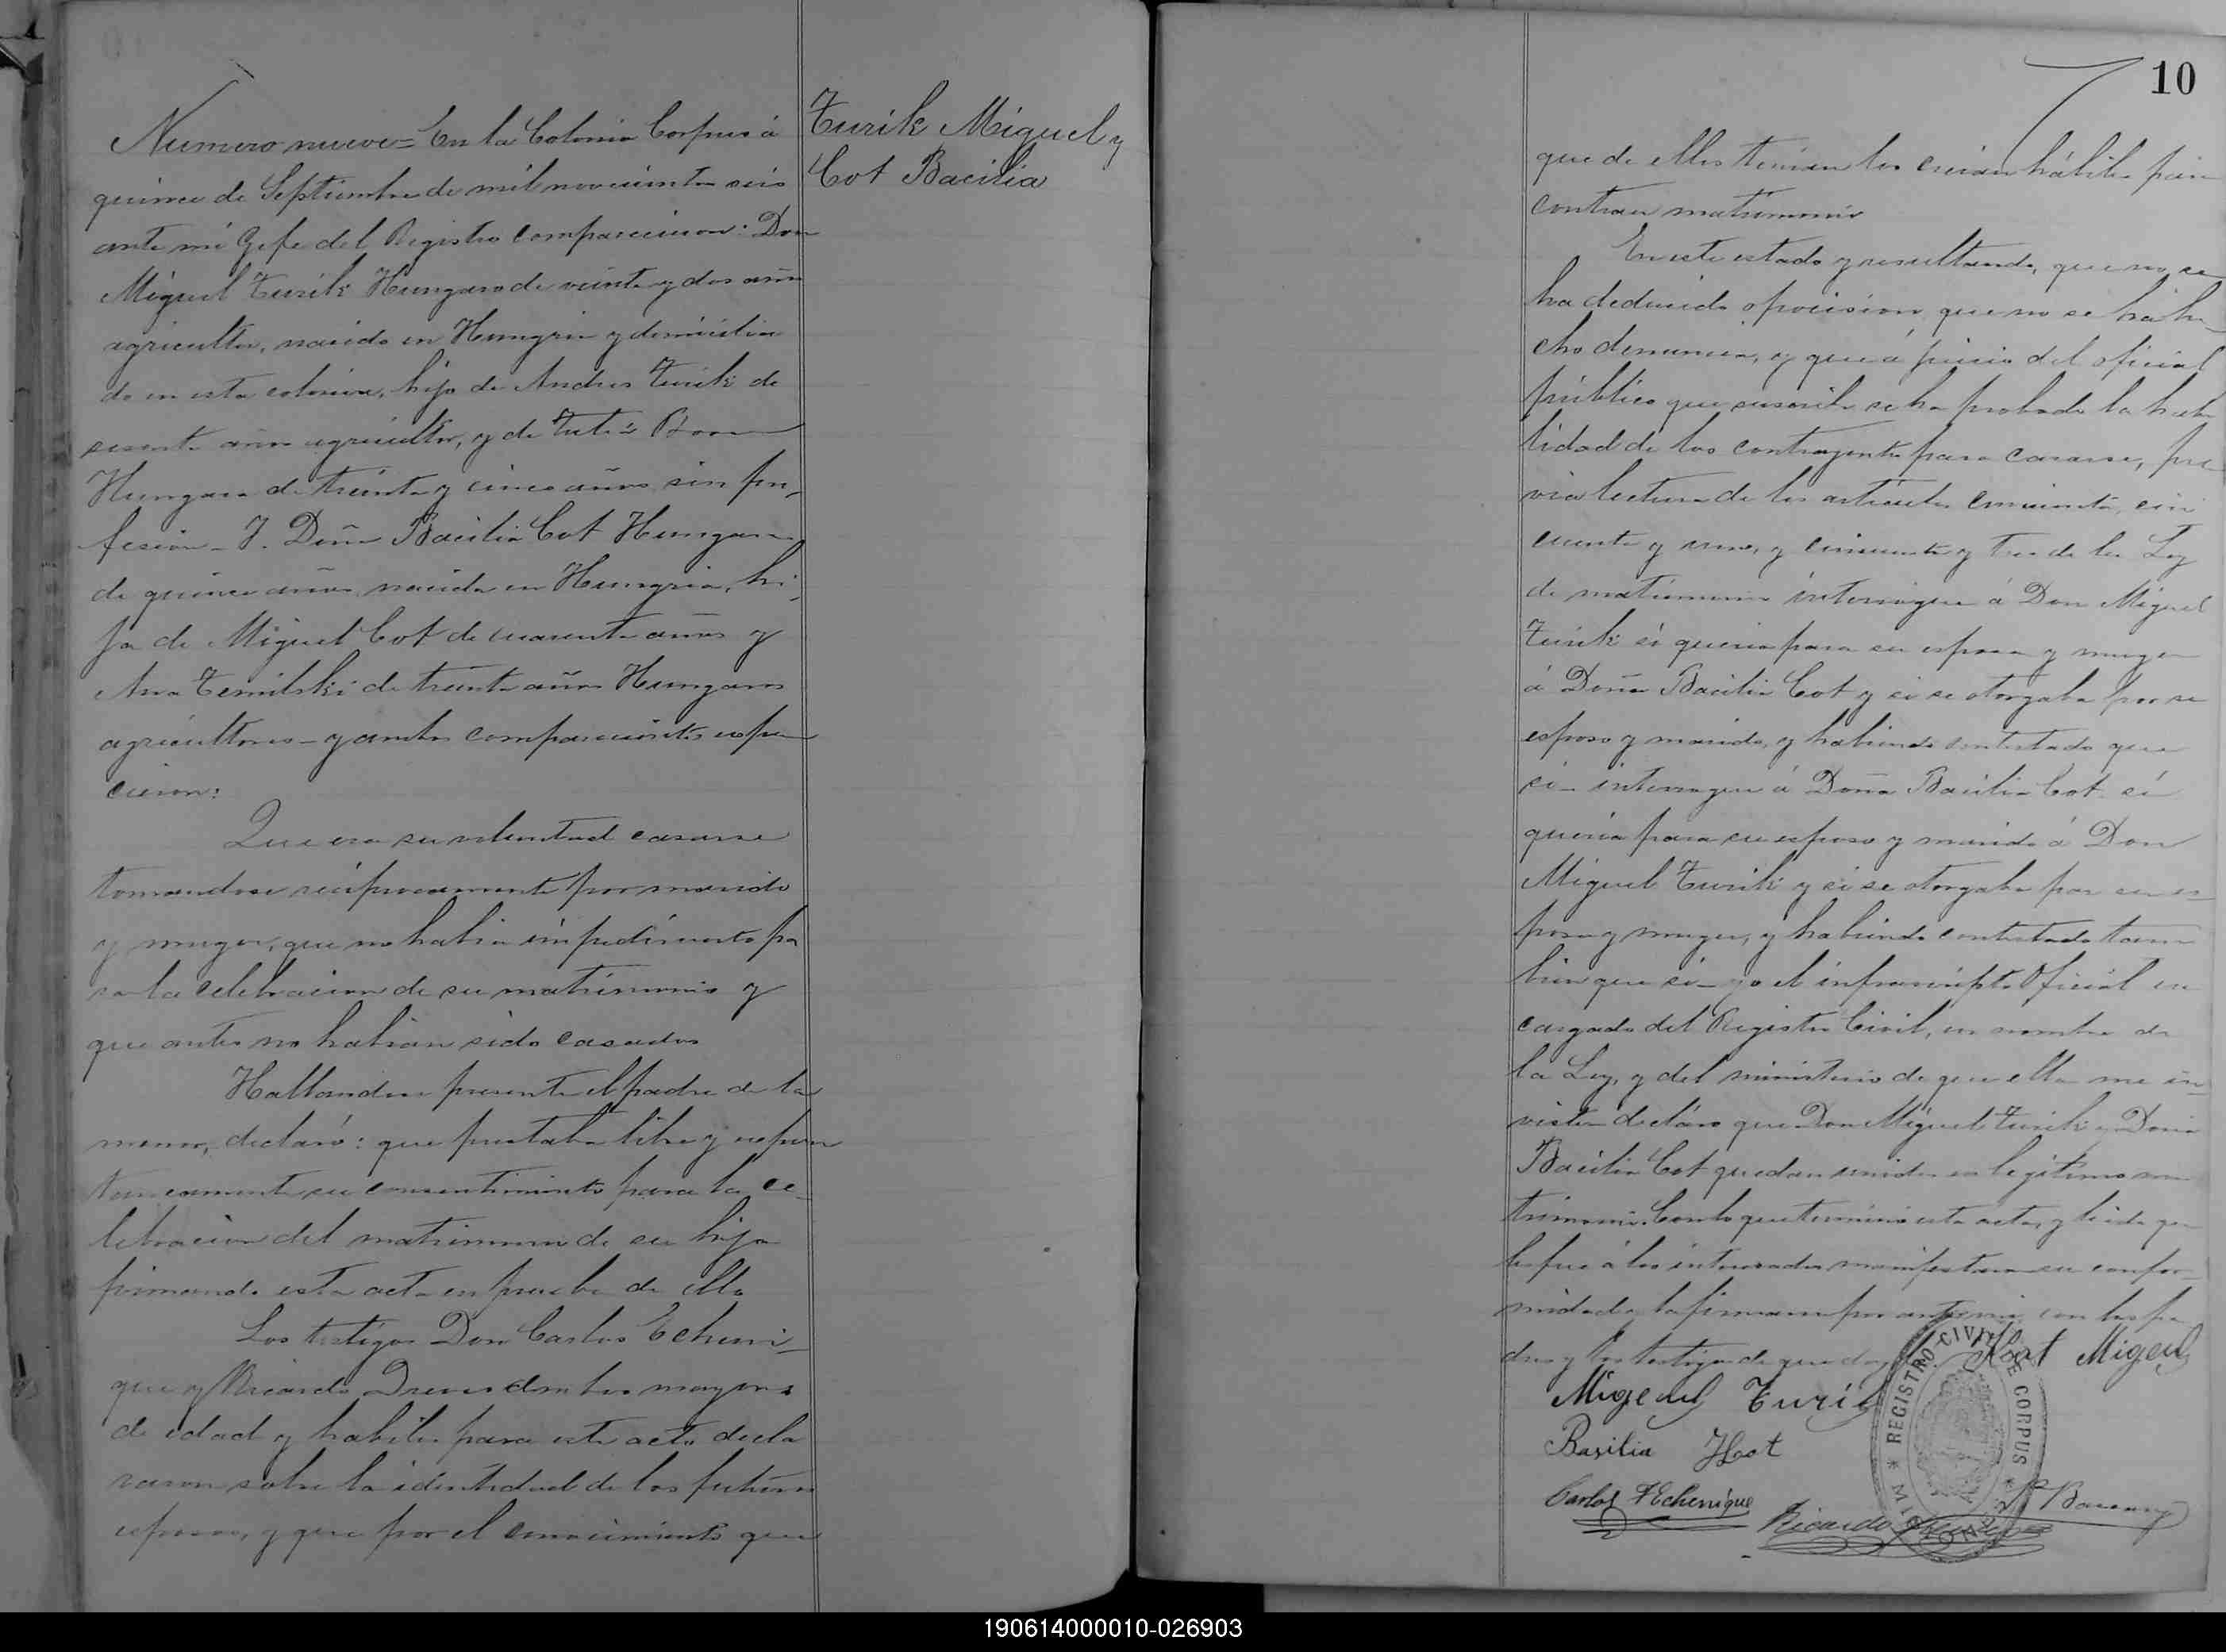 Numero nueve = En la Colonia Corpus á
quince de Septiembre de mil novecientos seis
ante mi Gefe del Registro comparecieron: Don
Miguel Turik Hungaro de veinte y dos años
agricultor, nacido en Hungria y domicilia
do en esta colonia, hijo de Andres Turik de
sesenta años agricultor, y de
Hungara de treinta y cinco años sin pro-
fesion - Y. Doña Bacilia Cot Hungara
de quince años nacida en Hungria, hi-
ja de Miguel Cot de cuarenta años y
Ana de treinta años Hungaros
agricultores - y ambos comparecientes espu
cieron:
Que era su voluntad casarse
tomandose reciprocamente por marido
y muger, que no habia impedimento pa
ra la celebracion de su matrimonio y
que antes no habian sido casados
Hallandose presente el padre de la
menor, declaró: que prestaba libre y espon
taneamente su consentimiento para la ce-
lebracion del matrimonio de su hija
firmando esta acta en prueba de ello
Los testigos Don Carlos Echeni-
que y Ricardo ambos mayores
de edad y habiles para este acto decla
raron sobre la identidad de los futuros
esposos, y que por el conocimiento que
Turik Miguel y
Cot Bacilia
10
que de ellos tenian los creian hábiles para
contraer matrimonio
En este estado y resultando, que no se
ha deducido oposicion, que no se ha he-
cho denuncia, y que á juicio del oficial
público que suscribe se ha probado la habi
lidad de los contrayentes para casarse, pre
via lectura de los articulos cincuenta, cin
cuenta y uno, y cincuenta y tres de la Ley
de matrimonio interrogue á Don Miguel
Turik si queria para su esposa y muger
á Doña Bacilia Cot y si se otorgaba por su
esposo y marido, y habiendo contestado que
si - interrogue á Doña Bacilia Cot si
queria para su esposo y marido á Don
Miguel Turik y si se otorgaba por su es-
posa y muger, y habiendo contestado tam
bien que si - yo el infrascripto Oficial en
cargado del Registro Civil, en nombre de
la Ley, y del ministerio de que ella me in-
viste declaro que Don Miguel Turik y Doña
Bacilia Cot quedan unidos en legitimo ma
trimonio. Con lo que terminó esta acta, y leida que
les fue á los interesados manifestaron su confor-
midad y la firmaron por ante mi con los pa
dres y los testigos de que doy fe. Kot Migeul
Migeul Turik
Basilia Kot
Carlos F Echenique
Ricardo
REGISTRO CIVIL DE CORPUS * MISIONES *
190614000010-026903